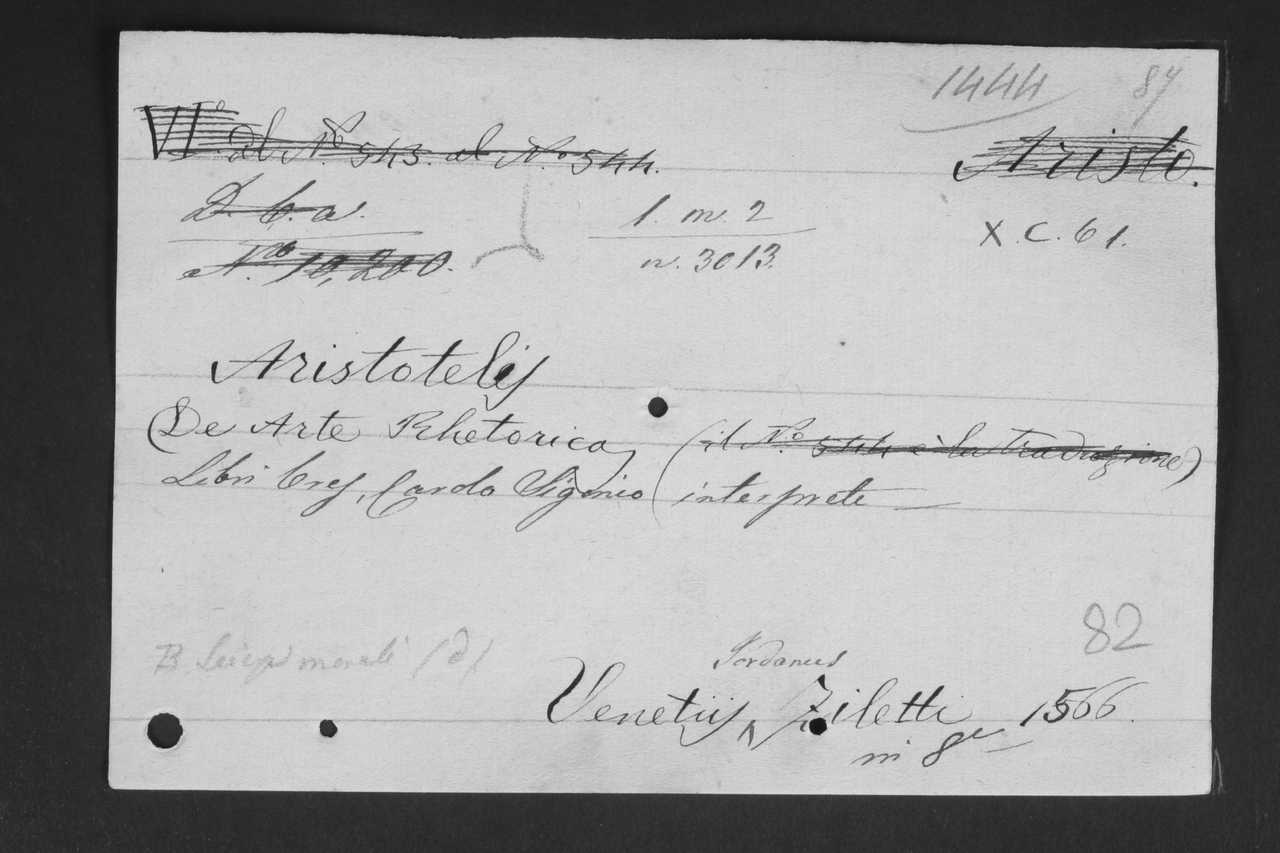 1444 87
VI.° dl N.° 543. al N.° 544. Aristo.
D. b. a. 1. m. 2 X. C. 61.
N.ro 10,200. n. 3013.
Aristotelis
De Arte Rhetorica (il N.° 544 è la traduzione)
Libri tres, Carolo Sigonio (interprete
82
B. morali (d)
Jordanus
Venetiis, Ziletti 1566.
in 8°